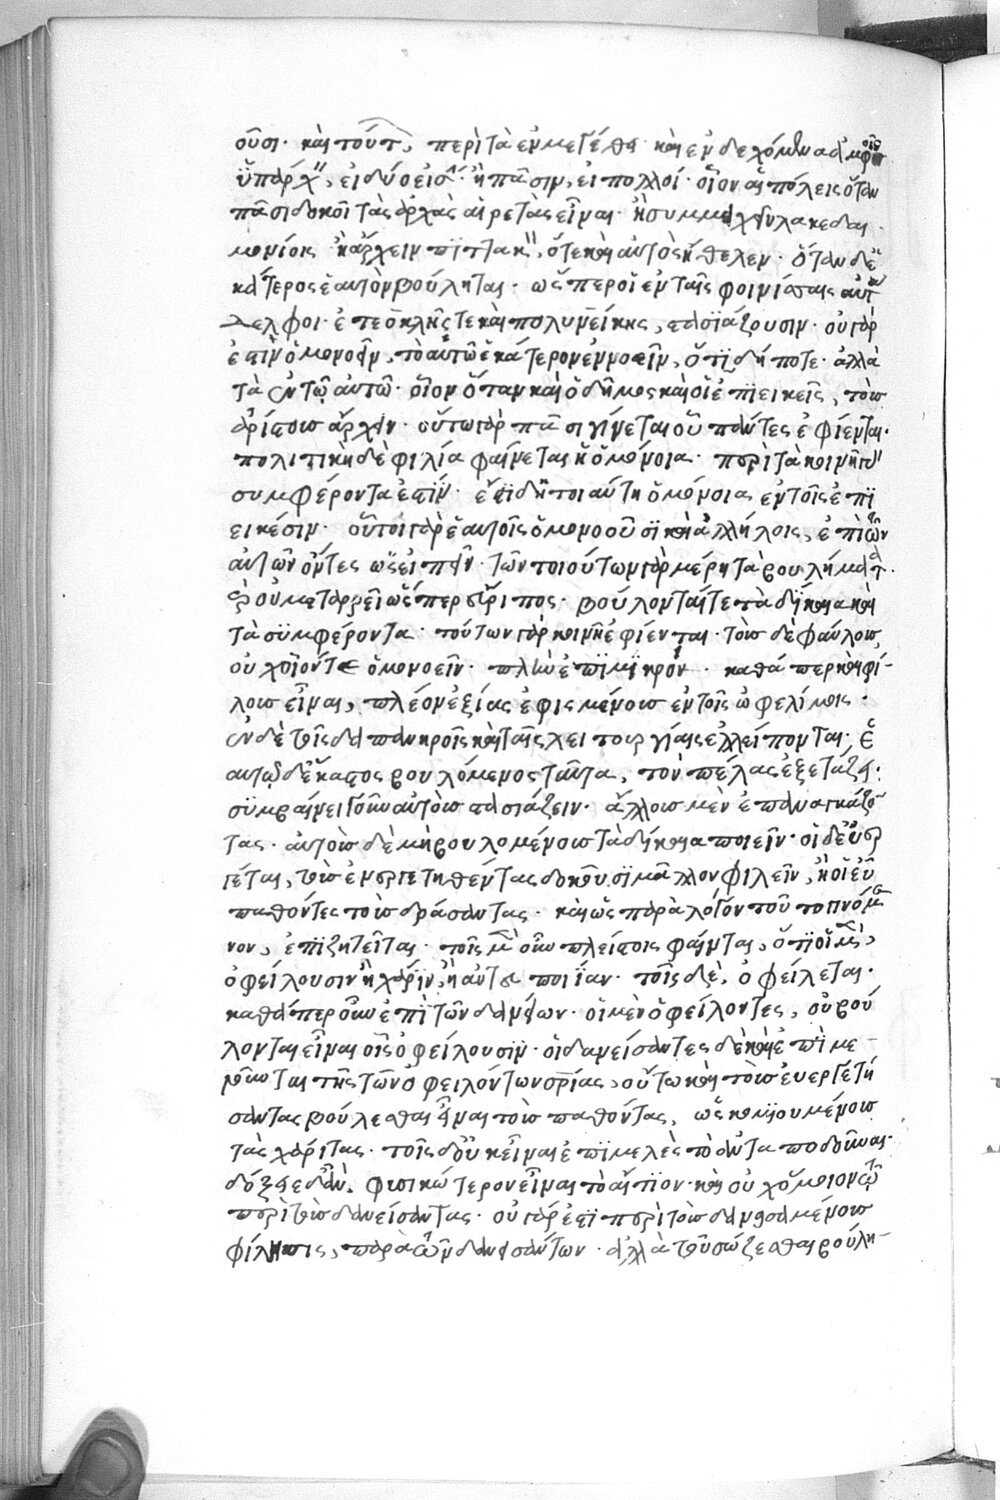 οῦσι· καὶ τούτ, περὶ τὰ ἐν μεγέθει καὶ ἐνδεχόμενα ἀμφοῖν
ὑπάρχ, εἰ δύο εἰσὶν· ἢ πᾶσιν, εἰ πολλοί· οἷον αἱ πόλεις ὅταν
πᾶσι δοκοῖ τὰς ἀρχὰς αἱρετὰς εἶναι· ἢ συμμαχεῖν λακεδαι
μονίοις· ἢ ἄρχειν πιττακὸν, ὅτε καὶ αὐτὸς ἤθελεν· ὅταν δὲ
κάτερος ἑαυτὸν βούληται· ὥσπερ οἱ ἐν ταῖς φοινίσσαις αὐτ
δελφοι· ἐτεοκλῆς τε καὶ πολυνείκης, στασιάζουσιν· οὐ γάρ
ἐστὶν ὁμονοεῖν, τὸ αὐτῶ ἑκάτερον ἐννοεῖν, ὅτι δήποτε· ἀλλὰ
τὰ ἐν τῷ αὐτῶ· οἷον ὅταν καὶ ὁ δῆμος καὶ οἱ ἐπιεικεῖς, τοὺς
ἀρίστους ἄρχειν· οὕτω γὰρ πᾶσι γίνεται οὗ πάντες ἐφίενται·
πολιτικὴ δὲ φιλία φαίνεται ἡ ὁμόνοια· περὶ τὰ κοινῇ
συμφέροντα ἐστὶν· ἔστι δὴ τοιαύτη ὁμόνοια ἐν τοῖς ἐπι
εικέσιν· οὗτοι γὰρ ἑαυτοῖς ὁμονοοῦσι καὶ ἀλλήλοις, ἐπὶ τῶν
αὐτῶν ὄντες ὡς εἰπεῖν· τῶν τοιούτων γὰρ μένει τὰ βουλήματ·
καὶ οὐ μεταρρεῖ ὥσπερ εὔριπος· βούλονταί τε τὰ δίκαια καὶ
τὰ συμφέροντα· τούτων γὰρ κοινῇ ἐφίενται· τοὺς δὲ φαύλους
οὐχ οἷόν τε ὁμονοεῖν· πλὴν ἐπὶ μικρόν· καθάπερ καὶ φί-
λους εἶναι, πλεονεξίας ἐφιεμένους ἐν τοῖς ὠφελίμοις·
ἐν δὲ τοῖς δαπανηροῖς καὶ ταῖς λειτουργίαις ἐλλείπονται· ἑ
αυτῷ δ' ἕκαστος βουλόμενος ταῦτα, τὸν πέλας ἐξετάζει·
συμβαίνει οὖν αὐτοὺς στασιάζειν· ἄλλους μὲν ἐπαναγκάζον
τας· αὐτοὺς δὲ μὴ βουλομένους τὰ δίκαια ποιεῖν· οἱ δ' εὐερ
γέται, τοὺς εὐεργετηθέντας δοκοῦσι μᾶλλον φιλεῖν, ἢ οἱ εὖ
παθόντες τοὺς δράσαντας· καὶ ὡς παρὰ λόγον τοῦτο γινόμε
νον, ἐπιζητεῖται· τοῖς μὲν οὖν πλείστοις φαίνεται, ὅτι οἱ μὲν,
ὀφείλουσιν ἢ χάριν, ἢ αὐτ ποιίαν· τοῖς δὲ, ὀφείλεται·
καθάπερ οὖν ἐπὶ τῶν δανείων· οἱ μὲν ὀφείλοντες, οὐ βού
λονται εἶναι οἷς ὀφείλουσιν· οἱ δανείσαντες δὲ καὶ ἐπιμε-
λοῦνται τῆς τῶν ὀφειλόντων σρίας, οὕτω καὶ τοὺς εὐεργετή
σαντας βούλεσθαι εἶναι τοὺς παθόντας, ὡς κομιουμένους
τὰς χάριτας· τοῖς δ' οὐκ εἶναι ἐπιμελὲς τὸ ἀνταποδοῦναι·
δόξειε δ' ἂν, φυσικώτερον εἶναι τὸ αἴτιον· καὶ οὐχ ὅμοιον τῷ
περὶ τοὺς δανείσαντας· οὐ γάρ ἐστι περὶ τοὺς δανεισαμένους
φίλησις, παρὰ τῶν δανεισάντων· ἀλλὰ τοῦ σώζεσθαι βούλη-